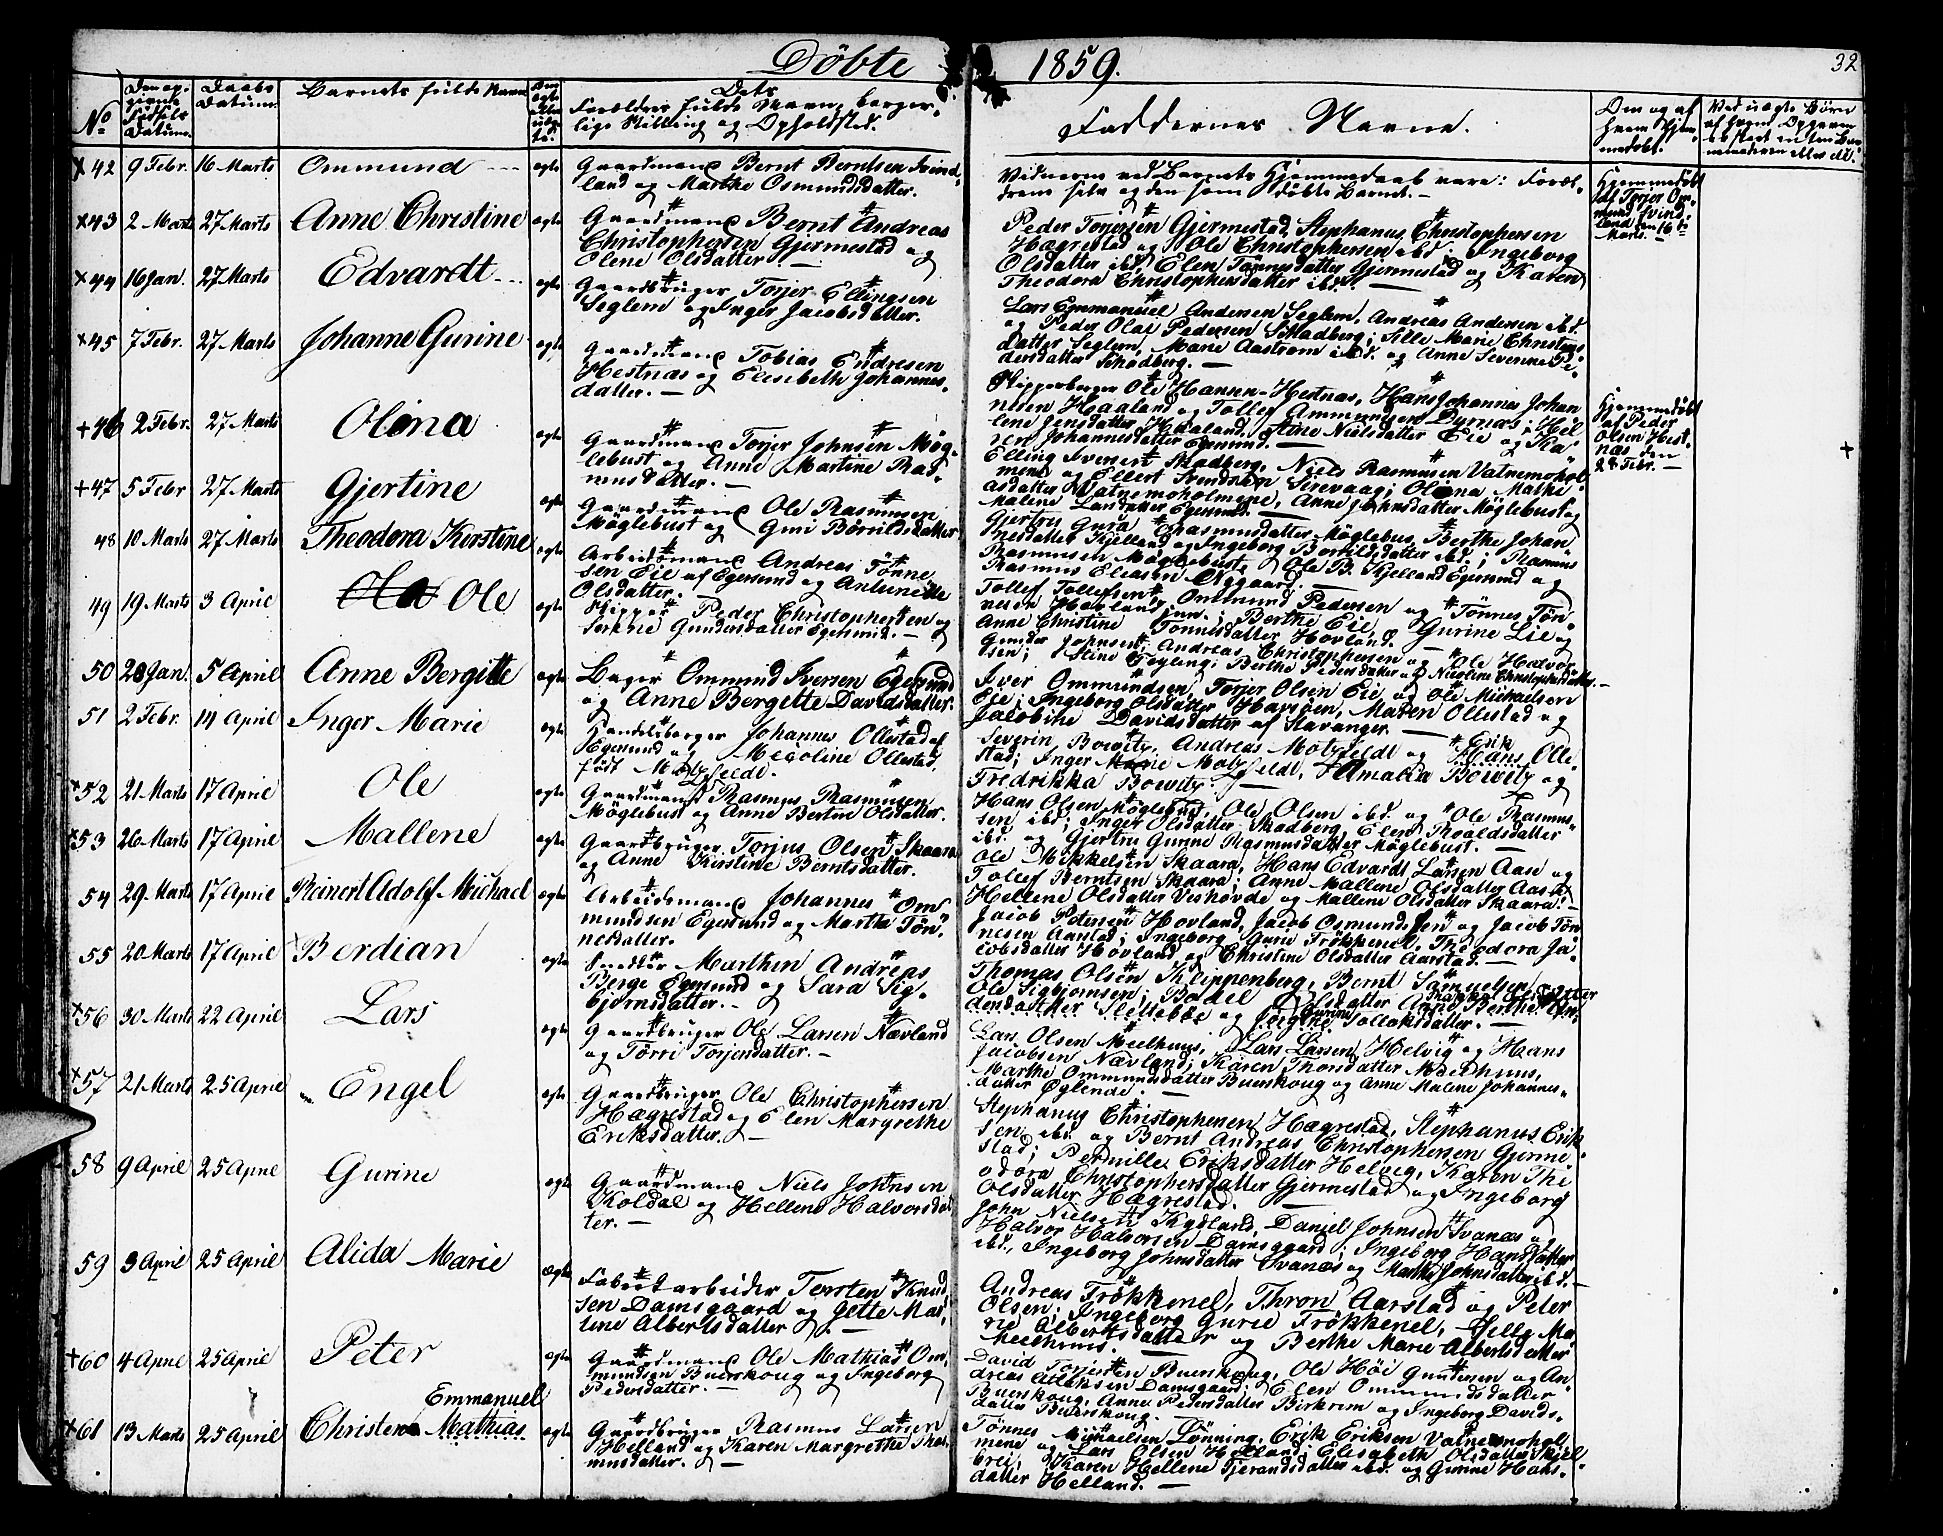 Døbte 1859.
32
No
Barnets fulde Navn
Daabs Datum
Forældres fulde Navn, borgerlige Stilling og Opholdsted.
Faddernes Navne.
42 9 Febr. 16 Marts Ommund ægte
Gaardmand Bernt Berntsen Svindland og Marthe Osmundsdatter.
Vidnerne ved Barnets Hjemmedaab vare: Forældrene selv og den som døbte Barnet.
Hjemmedøbt af Torjer Ommund Svindland den 16de Marts.
43 2 Marts 27 Marts Anne Christine ægte
Gaardmand Bernt Andreas Christophersen Gjermestad og Olene Olsdatter.
Peder Torjersen Gjermestad, Stephanus Christophersen Hægrestad og Ole Christophersen ibd.; Ingeborg Olsdatter ibd., Elen Tønnesdatter Gjermestad og Karen Theodora Christophersdatter ibd.
44 16 Jan. 27 Marts Edvardt ægte
Gaardbruger Torjer Ellingsen Seglem og Inger Jacobsdatter.
Lars Emmanuel Andersen Seglem, Andreas Andersen ibd. og Peder Olai Pedersen Skadberg; Sille Marie Christensdatter Seglem, Marie Aastrom ibd. og Anne Severine Pedersdatter Skadberg.
45 7 Febr. 27 Marts Johanne Gurine ægte
Gaardmand Tobias Endresen Hestnæs og Elisebeth Johannesdatter.
Skipperborger Ole Hansen Hestnæs, Hans Johannes Johannesen Haaland og Tollef Ammundsen Dyrnæs; Helene Jensdatter Haaland, Stine Nielsdatter Eie og Karen Johannesdatter Egersund.
Hjemmedøbt af Peder Olsen Hestnæs den 28 Febr.
46 2 Febr. 27 Marts Olina ægte
Gaardmand Torjer Johnsen Møglebust og Anne Martine Rasmusdatter.
Elling Iversen Skadberg, Niels Rasmusen Vatnemoholmene og Ellert Svendsen Sirevaag; Olena Mathiasdatter Vatnemoholmene, Anne Johnsdatter Møglebust og Malene Larsdatter Egersund.
47 5 Febr 27 Marts Gjertine ægte
Gaardmand Ole Rasmusen Møglebust og Guri Børrildsdatter
Gjertru Gura Rasmusdatter Møglebust, Berthe Johannesdatter Kjelland og Ingeborg Børrildsdatter ibd.; Rasmus Rasmusen Møglebust, Ole B. Kjelland Egersund og Rasmus Eliasen Nygaard.
48 10 Marts 27 Marts Theodora Kirstine ægte
Arbeidsmand Andreas Tønnesen Eie af Egersund og Antonette Olsdatter.
Tollef Tollefsen Hovland, Ommund Pedersen og Tønnes Tønnesen jun.; Berthe Eie, Gurine Lie og Anne Christine Tønnesdatter Hovland.
49 19 Marts 3 April Ole ægte
Skipper Peder Christophersen og Serene Gundersdatter Egersund.
Gunder Johnsen, Andreas Christophersen og Ole Halvorsen; Stine Tegling, Berthe Pedersdatter og Nicoline Christophersdatter.
50 28 Jan. 5 April Anne Bergitte ægte
Bager Ommund Iversen Egersund og Anne Bergette Davidsdatter.
Iver Ommundsen, Torjer Olsen Eie og Ole Michaelsen Eie; Ingeborg Olsdatter Havsøen, Maren Ollestad og Jacobine Davidsdatter af Stavanger.
51 2 Febr. 14 April Inger Marie ægte
Handelsborger Johannes Ollestad af Egersund og Nicoline Ollestad, født Motzfeldt.
Severin Bowitz, Andreas Motzfeldt og Erik Hans Ollestad; Inger Marie Motzfeldt, Amalia Bowitz og Fredrikka Bowitz.
52 21 Marts 17 April Ole ægte
Gaardmand Rasmus Rasmusen Møglebust og Anne Bertine Olsdatter.
Hans Olsen Møglebust, Ole Olsen ibd. og Ole Rasmussen ibd.; Inger Olsdatter Skadberg, Elen Roaldsdatter ibd. og Gjertru Gurine Rasmusdatter Møglebust.
53 26 Marts 17 April Mallene ægte
Gaardbruger Torjus Olsen Skaara og Anne Kirstine Berntsdatter.
Ole Mikkelsen Skaara, Hans Edvardt Larsen Aase og Tollef Berntsen Skaara; Anne Mallene Olsdatter Aase, Hellene Olsdatter Veshovde og Mallene Olsdatter Skaara.
54 29 Marts 17 April Reinert Adolf Michael ægte
Arbeidsmand Johannes Ommundsen Egersund og Martha Tønnesdatter.
Jacob Petersen Hovland, Jacob Osmundsen og Jacob Tønnesen Aarstad; Ingeborg Gurie Frøkkenel, Theodora Jacobsdatter Hovland og Christine Olsdatter Aarstad.
55 20 Marts 17 April Berdian ægte
Snedker Marthin Andreas Berge Egersund og Sara Sigbjørnsdatter.
Thomas Olsen Klippenberg, Bernt Samuelsen, Ole Sigbjørnsen; Bodel Olsdatter
56 30 Marts 22 April Lars ægte
Gaardbruger Ole Larsen Nævland og Tørri Torjersdatter.
Lars Olsen Meelhuus, Lars Larsen Helvig og Hans Jacobsen Nævland; Karen Thorsdatter Meelhuus, Marthe Ommundsdatter Buerskoug og Anne Malene Johannesdatter Øglende.
57 21 Marts 25 April Engel ægte
Gaardbruger Ole Christophersen Hægrestad og Elen Margrethe Eriksdatter.
Stephanus Christophersen Hægrestad, Stephanus Eriksen ibd. og Bernt Andreas Christophersen Gjermestad; Pernille Eriksdatter Helvig, Karen Theodora Christophersdatter Gjermestad og Ingeborg Olsdatter Hægrestad.
58 9 April 25 April Gurine ægte
Gaardmand Niels Johnsen Koldal og Hellene Halvorsdatter.
John Nielsen Kydland, Daniel Johnsen Svanæs og Halvor Halvorsen Damsgaard; Ingeborg Hansdatter ibd., Ingeborg Johnsdatter Svanæs og Marthe Johnsdatter ibd.
59 3 April 25 April Alida Marie ægte
Fabrikarbeider Torsten Knudsen Damsgaard og Jette Martine Albertsdatter.
Andreas Frøkkenel, Thron Aarstad og Peter Olsen; Ingeborg Gurie Frøkkenel, Sille Marie Albertsdatter og Berthe Marie Albertsdatter Meelhuus.
60 4 April 25 April Peter ægte
Gaardmand Ole Mathias Ommundsen Buerskoug og Ingeborg Pedersdatter.
David Torjersen Buerskoug, Ole Høi Gundersen og Andreas Damsgaard; Elen Ommundsdatter Buerskoug, Anne Pedersdatter Birkrem og Ingeborg Davidsdatter Buerskoug.
61 13 Marts 25 April Christen Emmanuel Mathias ægte
Gaardbruger Rasmus Larsen Helland og Karen Margrethe Rasmusdatter.
Tønnes Michaelsen Lønning, Erik Eriksen Vatnemoholmene og Lars Olsen Helland; Elisabeth Olsdatter Skjelbrei, Karen Hellene Tjerandsdatter ibd. og Gurine Hansdatter Helland.